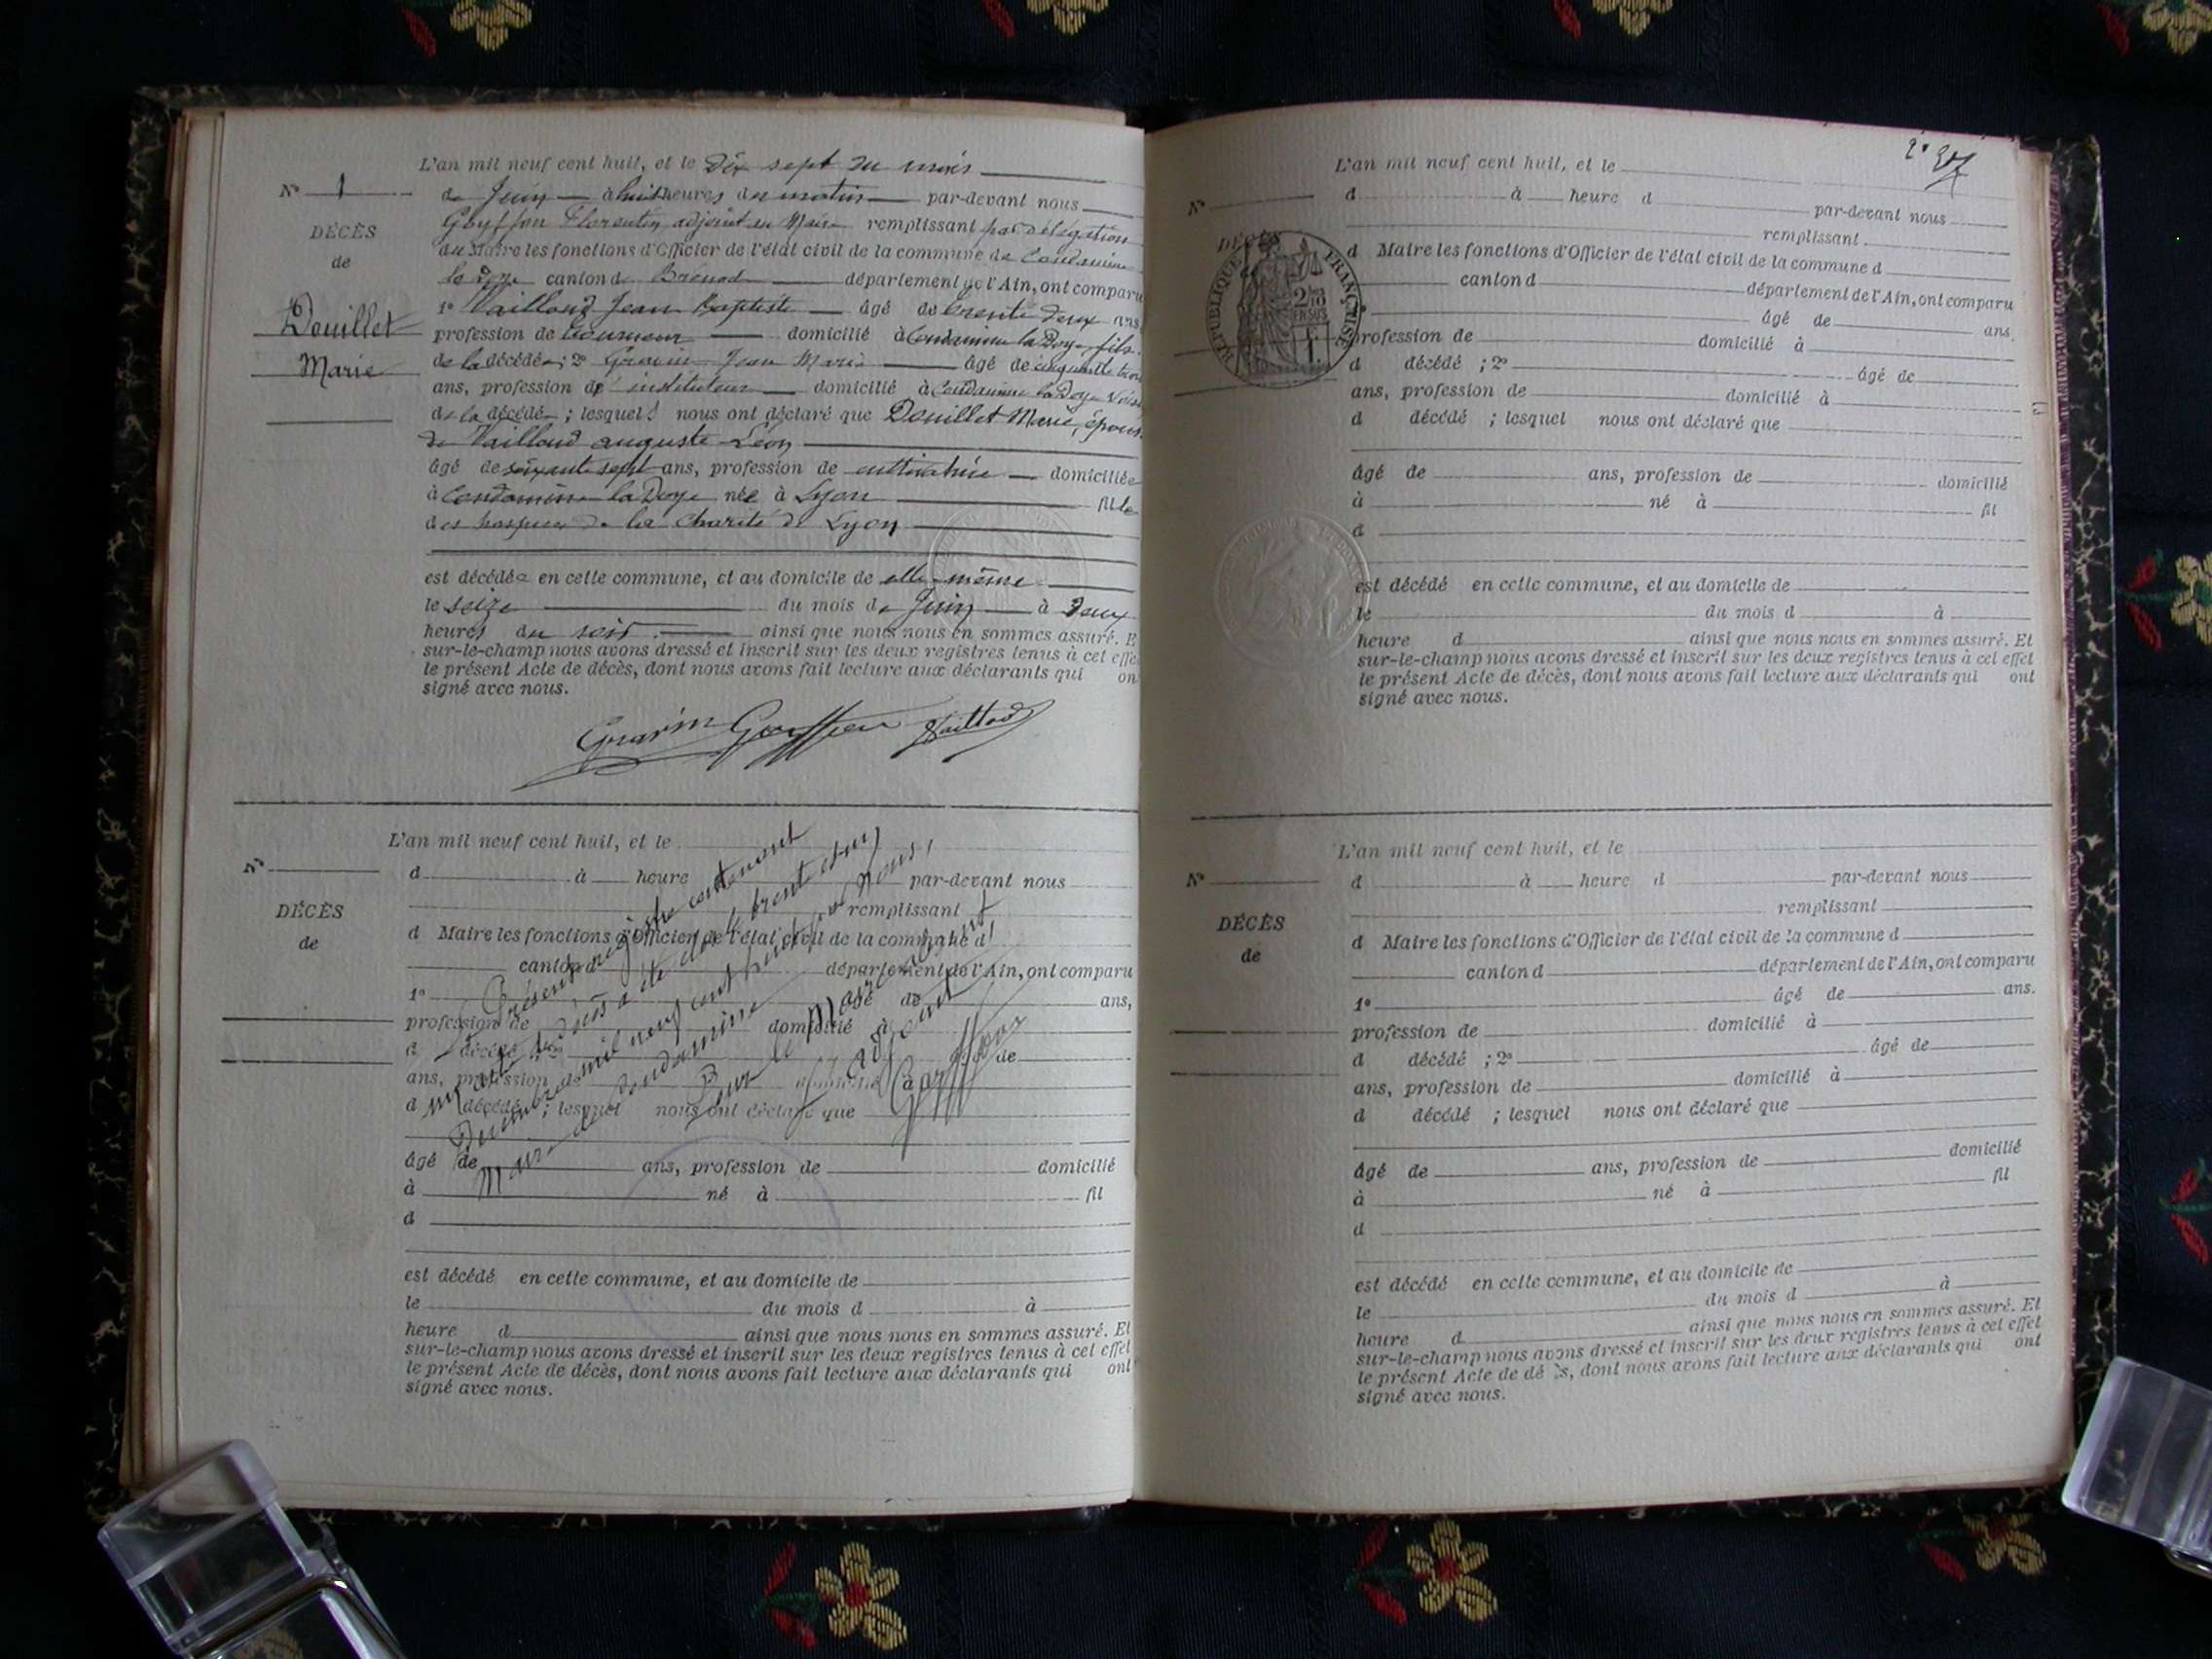 N° 1
DÉCÈS
de
Douillet
Marie
L'an mil neuf cent huit, et le Dix sept du mois
de Juin à huit heures du matin par-devant nous
Goyffon Florentin adjoint au Maire remplissant par délégation
du Maire les fonctions d'Officier de l'état civil de la commune de Condamine
la Doye canton de Brénod département de l'Ain, ont comparu
1° Vailloud Jean Baptiste âgé de trente deux ans
profession de domicilié à Condamine la Doye fils
de la décédée ; 2° Guarin Jean Marie âgé de cinquante trois
ans, profession d'instituteur domicilié à Condamine la Doye voisin
de la décédée ; lesquels nous ont déclaré que Douillet Marie, épouse
de Vailloud auguste Léon
âgé de soixante sept ans, profession de cultivatrice domiciliée
à Condamine la Doye née à Lyon fille
des hospices de la Charité de Lyon
est décédée en cette commune, et au domicile de elle-même
le seize du mois de Juin à deux
heures du soir ainsi que nous nous en sommes assuré. E
sur-le-champ nous avons dressé et inscrit sur les deux registres tenus à cet effe
le présent Acte de décès, dont nous avons fait lecture aux déclarants qui on
signé avec nous.
Guarin Goyffon Vailloud
N°
DÉCÈS
de
L'an mil neuf cent huit, et le
d à heure par-devant nous
remplissant
d Maire les fonctions d'Officier de l'état civil de la commune d
canton d département de l'Ain, ont comparu
1° âgé de ans,
profession de domicilié à
d décédé ; 2° âgé de
ans, profession de domicilié à
d décédé ; lesquel nous ont déclaré que
âgé de ans, profession de domicilié
à né à fil
d
est décédé en cette commune, et au domicile de
le du mois d à
heure d ainsi que nous nous en sommes assuré. Et
sur-le-champ nous avons dressé et inscrit sur les deux registres tenus à cet effet
le présent Acte de décès, dont nous avons fait lecture aux déclarants qui ont
signé avec nous.
Présent registre contenant
a été trente et un
Décembre mil neuf cent huit par nous,
Maire de Condamine
Pour le Maire
L'adjoint
Goyffon
N°
DÉCÈS
RÉPUBLIQUE FRANÇAISE
L'an mil neuf cent huit, et le
d à heure d par-devant nous
remplissant
d Maire les fonctions d'Officier de l'état civil de la commune d
canton d département de l'Ain, ont comparu
âgé de ans.
profession de domicilié à
d décédé ; 2° âgé de
ans, profession de domicilié à
d décédé ; lesquel nous ont déclaré que
âgé de ans, profession de domicilié
à né à fil
d
est décédé en cette commune, et au domicile de
le du mois d à
heure d ainsi que nous nous en sommes assuré. Et
sur-le-champ nous avons dressé et inscrit sur les deux registres tenus à cet effet
le présent Acte de décès, dont nous avons fait lecture aux déclarants qui ont
signé avec nous.
N°
DÉCÈS
de
L'an mil neuf cent huit, et le
d à heure d par-devant nous
remplissant
d Maire les fonctions d'Officier de l'état civil de la commune d
canton d département de l'Ain, ont comparu
1° âgé de ans.
profession de domicilié à
d décédé ; 2° âgé de
ans, profession de domicilié à
d décédé ; lesquel nous ont déclaré que
âgé de ans, profession de domicilié
à né à fil
d
est décédé en cette commune, et au domicile de
le du mois d à
heure d ainsi que nous nous en sommes assuré. Et
sur-le-champ nous avons dressé et inscrit sur les deux registres tenus à cet effet
le présent Acte de décès, dont nous avons fait lecture aux déclarants qui ont
signé avec nous.